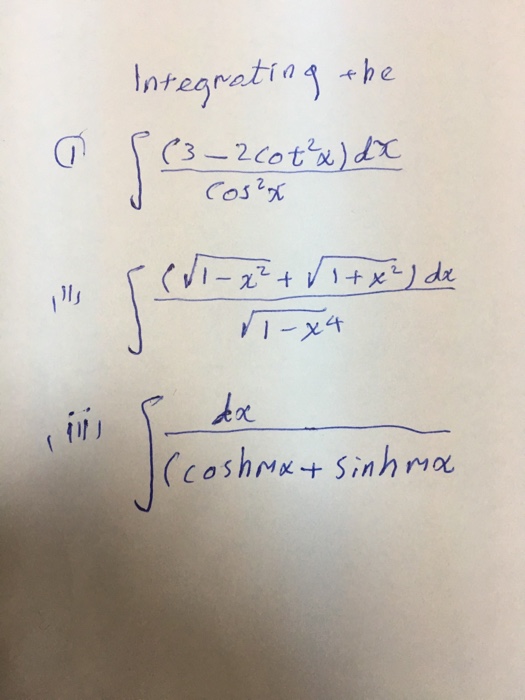 Integrating the
(i) ∫ (3 – 2cot²x) dx / cos²x
(ii) ∫ (√1-x² + √1+x²) dx / √1-x⁴
(iii) ∫ dx / (coshmx + sinhmx